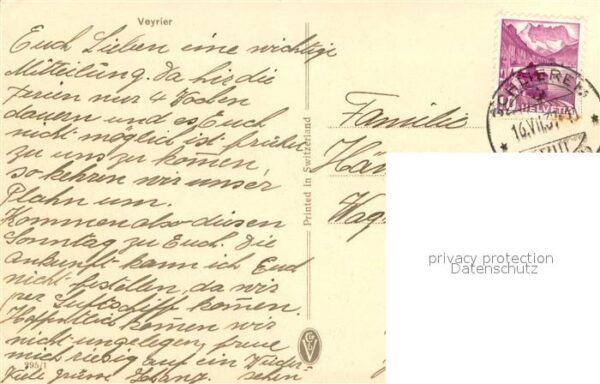 Veyrier
Euch Lieben eine wichtige
Mitteilung. Da hir die
Ferien nur 4 Wochen
dauern und es Euch
nicht möglich ist früher
zu uns zu kommen,
so kehren wir unser
Plahn um.
Kommen also diesen
Sonntag zu Euch. Die
ankunft kann ich Eud
nicht festellen, da wir
per Luftschiff kommen.
Hoffentlich kommen wir
nicht ungelegen, freue
mich riesig auf ein Wieder-
sehen
Viele grüsse
9951
Printed in Switzerland
Familie
Wag
HELVETIA
14.VII.37
privacy protection
Datenschutz